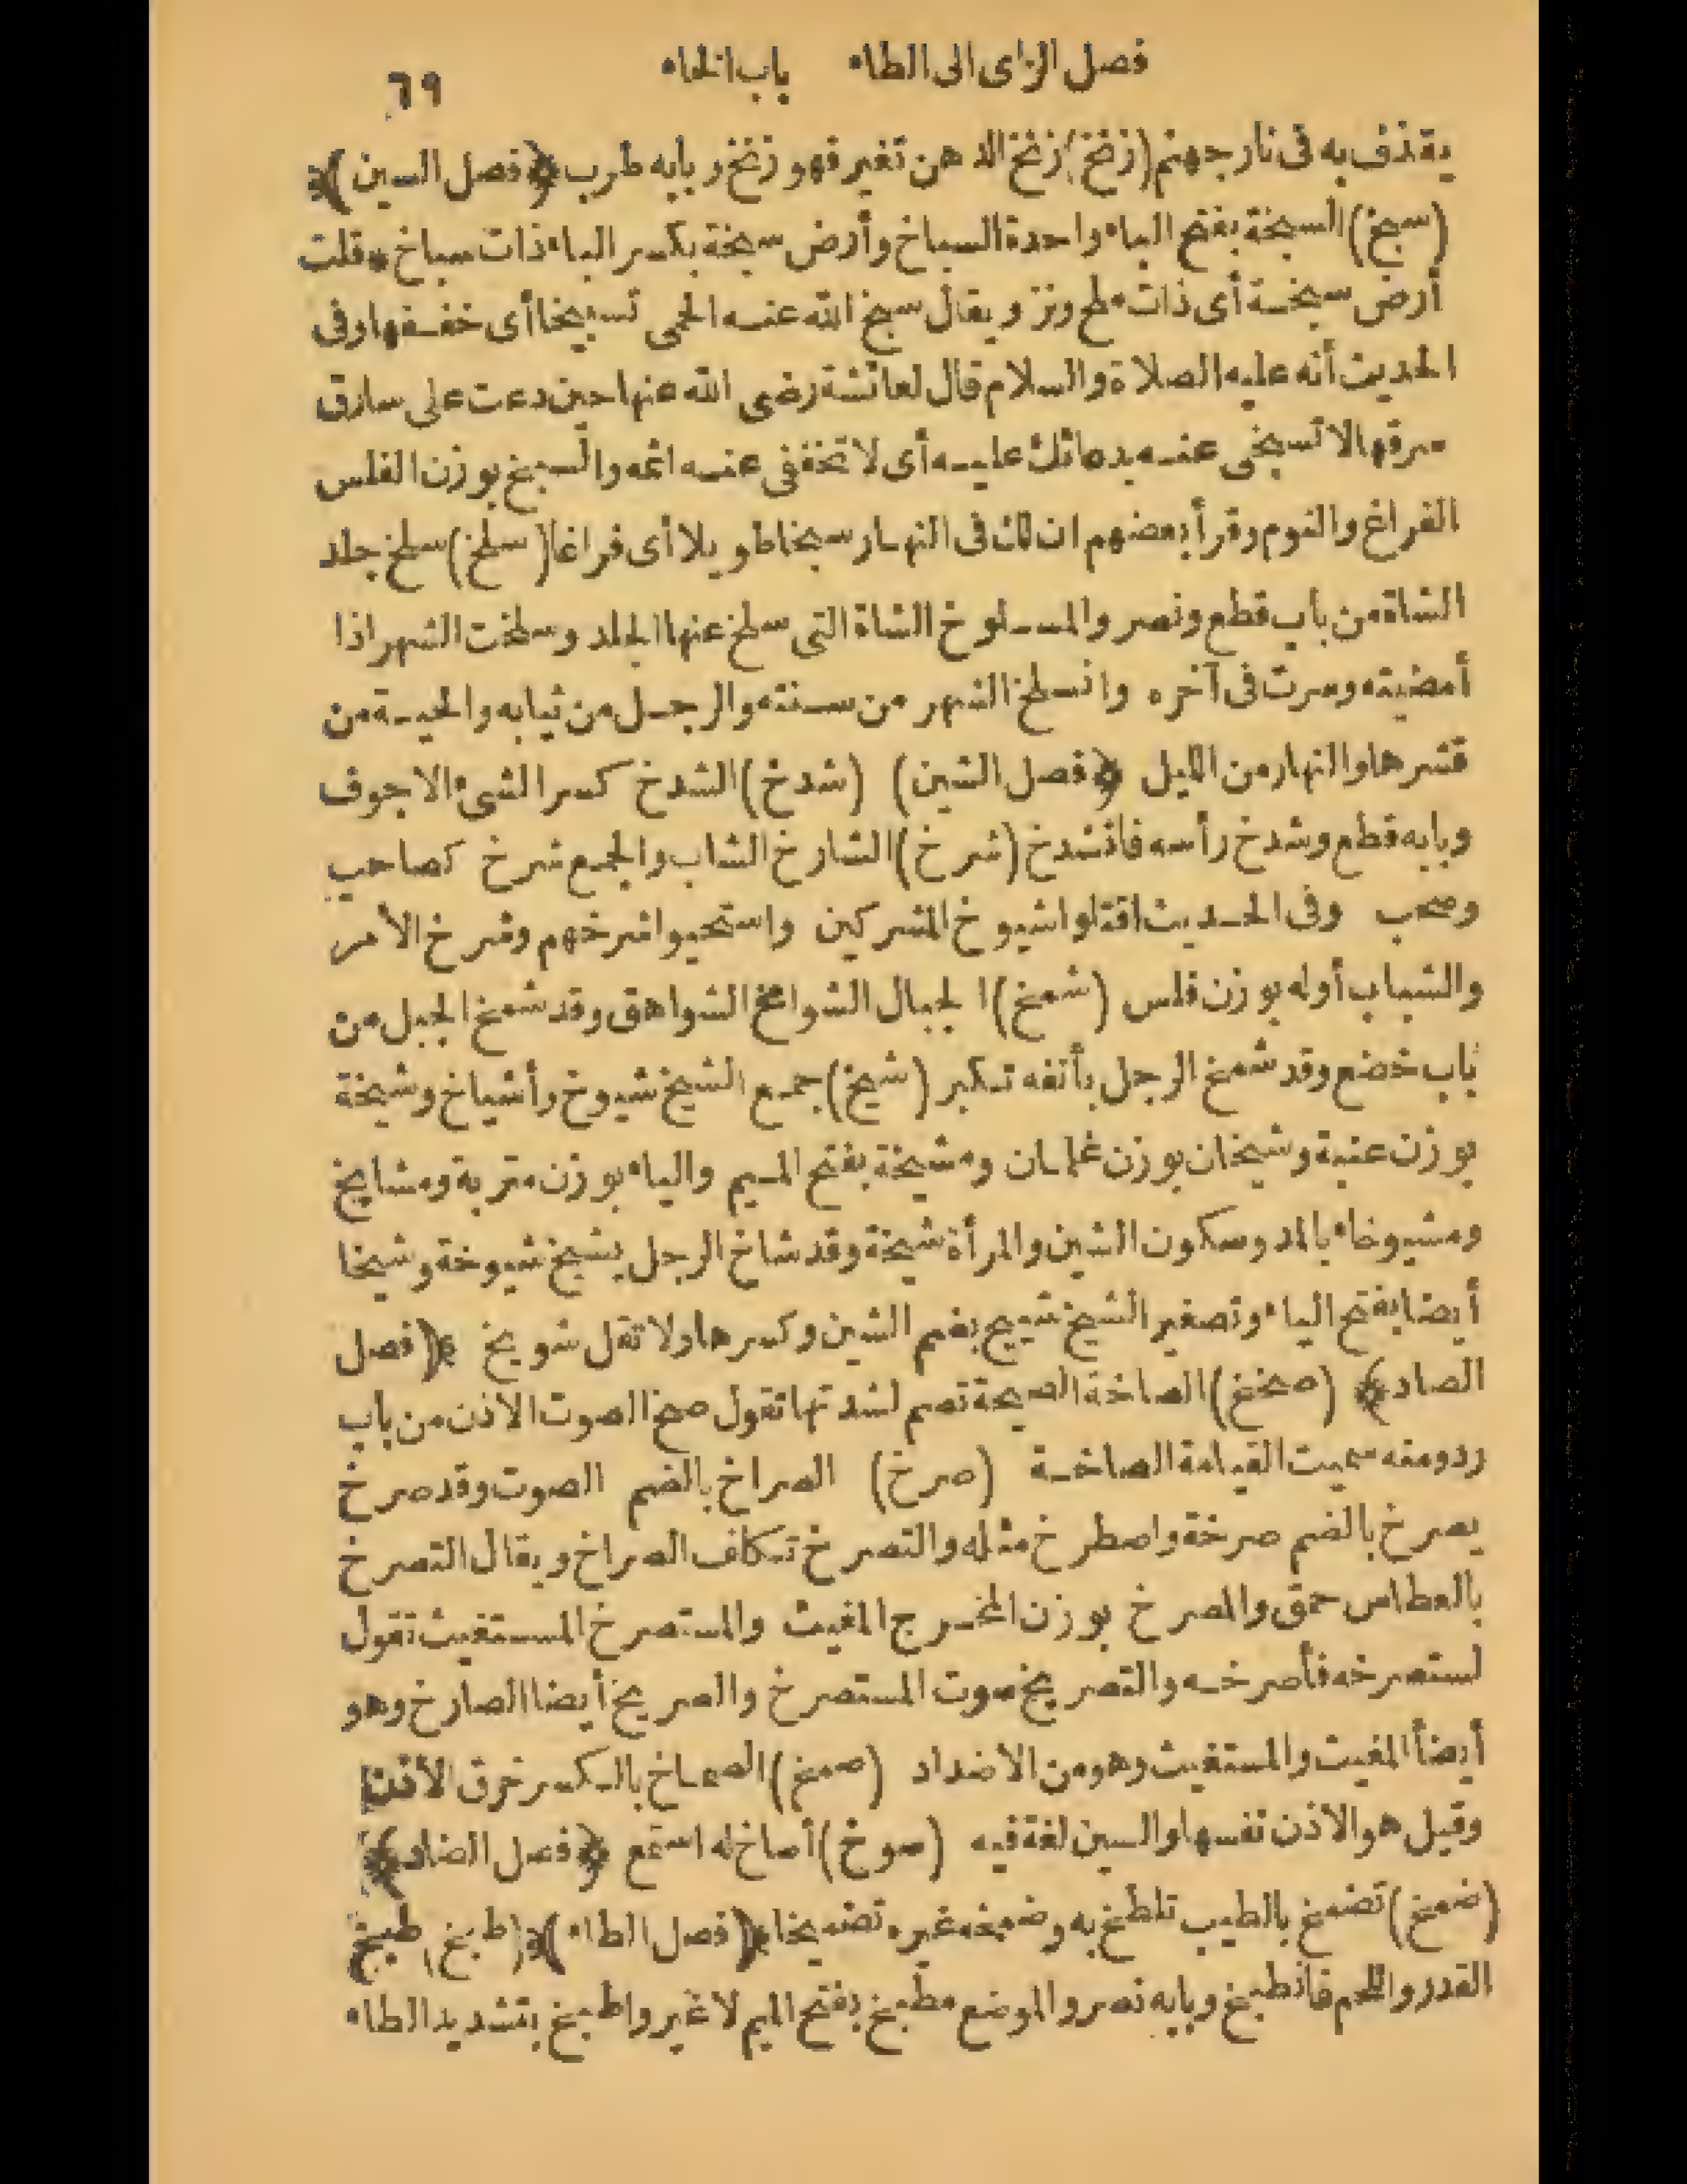 فصل الزاى الى الطاء باب الخاء ٦٩
يقذف به فى نار جهنم (زنخ) زنخ الدهن تغير فهو زنخ وبابه طرب ﴿فصل السين﴾
(سبخ) السبخة بفتح الباء واحدة السباخ وأرض سبخة بكسر الباء ذات سباخ * قلت
أرض سبخة أى ذات ملح ونز ويقال سبخ الله عنه الحمى تسبيخا أى خففها وفى
الحديث أنه عليه الصلاة والسلام قال لعائشة رضى الله عنها حين دعت على سارق
سرقها لا تسبخى عنه بدعائك عليه أى لا تخففى عنه اثمه والسبخ بوزن الفلس
الفراغ والنوم وقرأ بعضهم ان لك فى النهار سبخا طويلا أى فراغا (سلخ) سلخ جلد
الشاة من باب قطع ونصر والمسلوخ الشاة التى سلخ عنها الجلد وسلخت الشهر اذا
أمضيته وصرت فى آخره وانسلخ الشهر من سنته والرجل من ثيابه والحية من
قشرها والنهار من الليل ﴿فصل الشين﴾ (شدخ) الشدخ كسر الشىء الاجوف
وبابه قطع وشدخ رأسه فانشدخ (شرخ) الشارخ الشاب والجمع شرخ كصاحب
وصحب وفى الحديث اقتلوا شيوخ المشركين واستحيوا شرخهم وشرخ الأمر
والشباب أوله بوزن فلس (شمخ) الجبال الشوامخ الشواهق وقد شمخ الجبل من
باب خضع وقد شمخ الرجل بأنفه تكبر (شيخ) جمع الشيخ شيوخ وأشياخ وشيخة
بوزن عنبة وشيخان بوزن غلمان ومشيخة بفتح الميم والياء بوزن متربة ومشايخ
ومشيوخاء بالمد وسكون الشين والمرأة شيخة وقد شاخ الرجل يشيخ شيوخة وشيخا
أيضا بفتح الياء وتصغير الشيخ شييخ بضم الشين وكسرها ولا تقل شويخ ﴿فصل
الصاد﴾ (صخخ) الصاخة الصيحة تصم لشدتها تقول صخ الصوت الاذن من باب
رد ومنه سميت القيامة الصاخة (صرخ) الصراخ بالضم الصوت وقد صرخ
يصرخ بالضم صرخة واصطرخ مثله والتصرخ تكلف الصراخ ويقال التصرخ
بالعطاس حمق والمصرخ بوزن المخرج المغيث والمستصرخ المستغيث تقول
استصرخه فأصرخه والتصريخ صوت المستصرخ والصريخ أيضا الصارخ وهو
أيضا المغيث والمستغيث وهو من الاضداد (صمخ) الصماخ بالكسر خرق الأذن
وقيل هو الاذن نفسها والسين لغة فيه (صوخ) أصاخ له استمع ﴿فصل الضاد﴾
(ضمخ) تضمخ بالطيب تلطخ به وضمخه غيره تضميخا ﴿فصل الطاء﴾ (طبخ) طبخ
القدر واللحم فانطبخ وبابه نصر والموضع مطبخ بفتح الميم لا غير واطبخ بتشديد الطاء